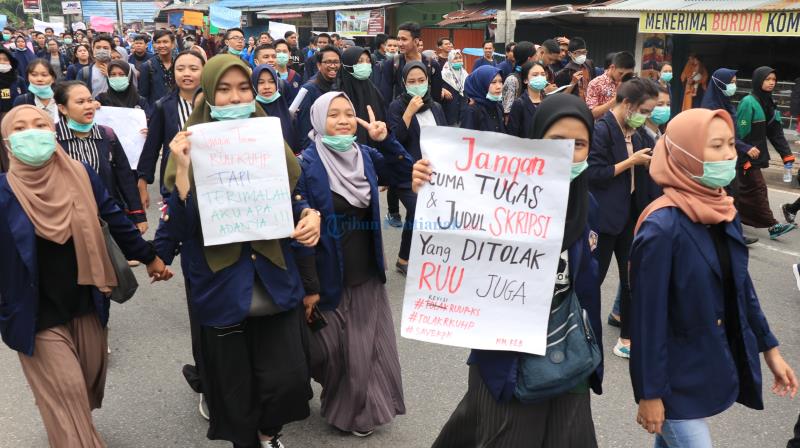 MENERIMA BORDIR KOM
JNE
RUUKUHP
TAPI
TERIMALAH
AKU APA
ADANYA !!!
Jangan
CUMA TUGAS
& JUDUL SKRIPSI
Yang DITOLAK
RUU JUGA
REVISI
#TOLAK RUUPKS
#TOLAKRKUHP
#SAVEKPK
KM FEB
Tribun Pontianak